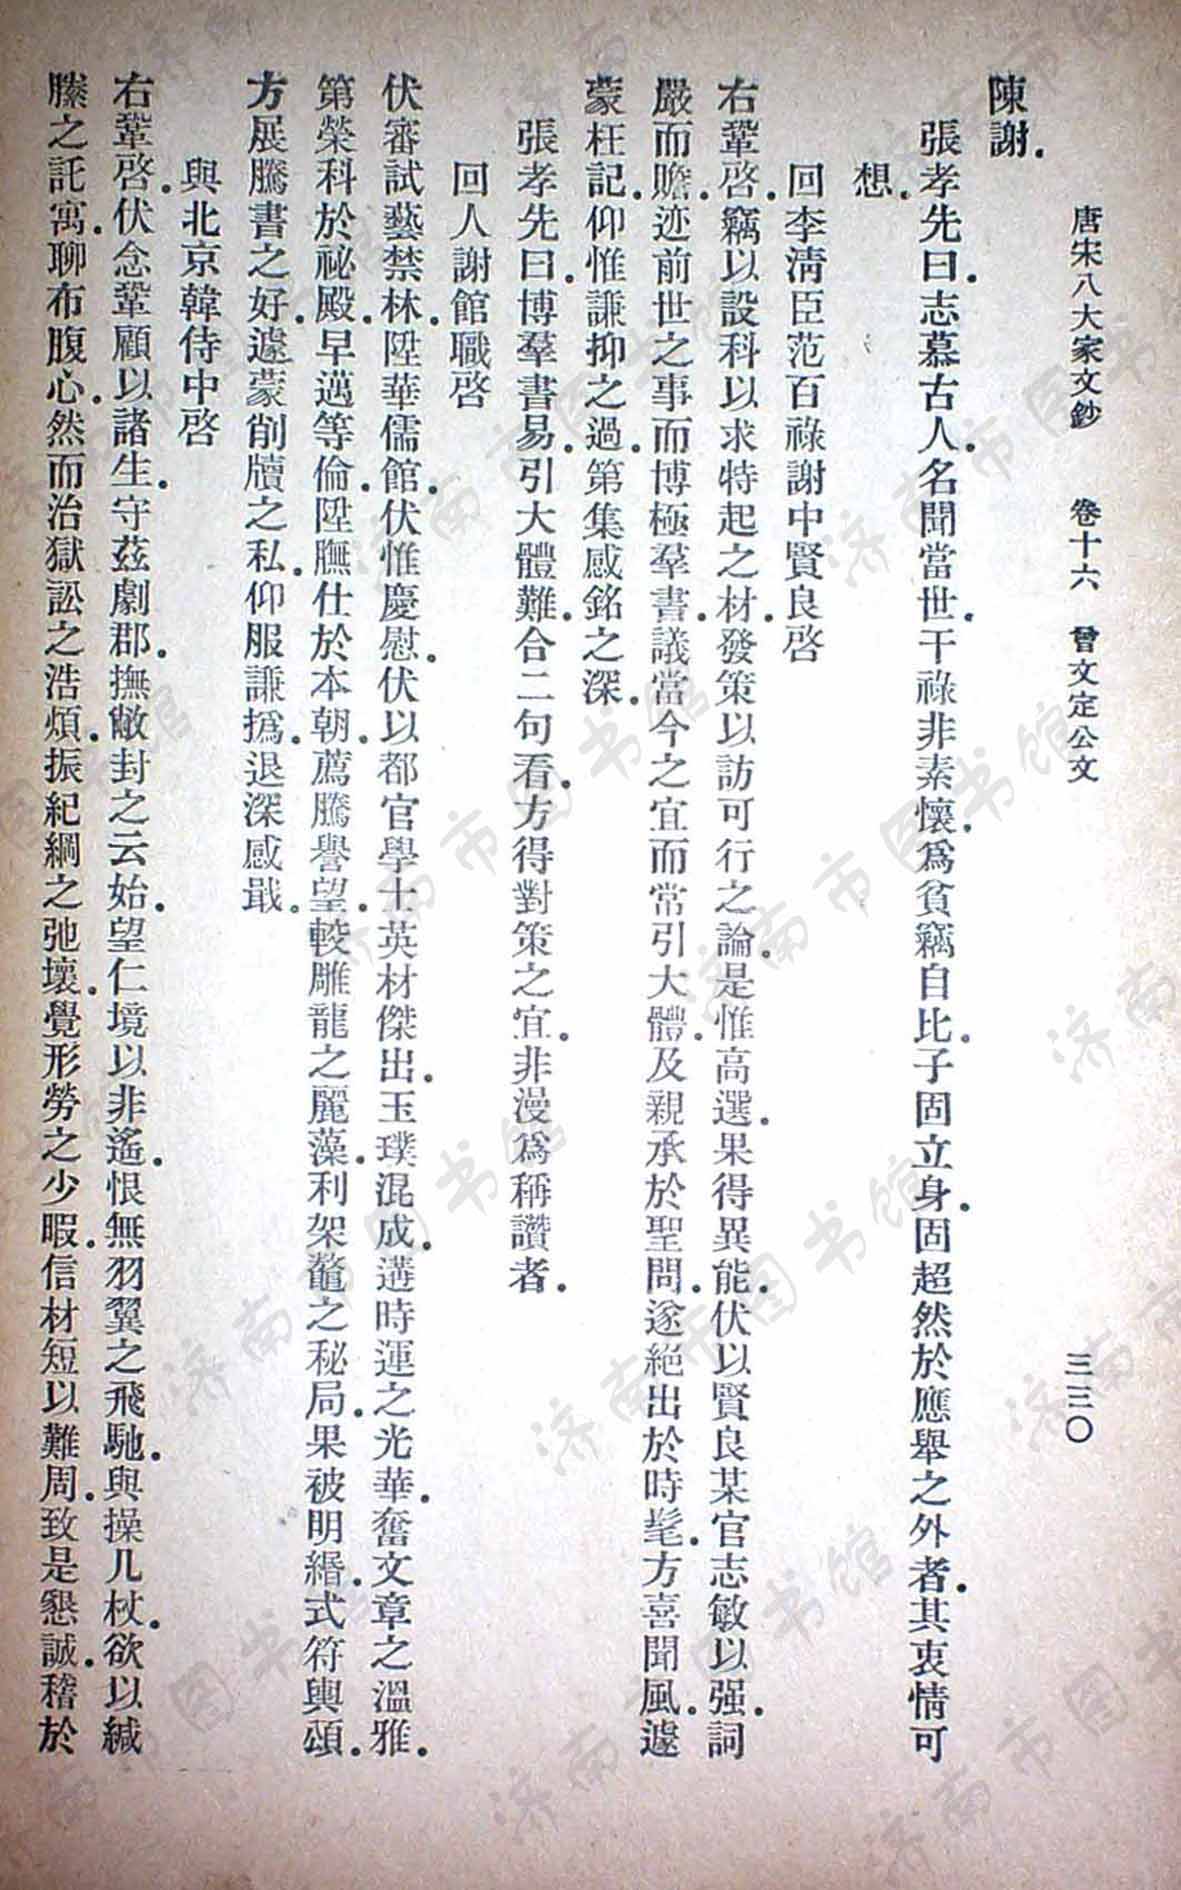 唐宋八大家文鈔　卷十六　曾文定公文　三三〇
陳謝．
張孝先曰．志慕古人．名聞當世．干祿非素懷．爲貧竊自比．子固立身．固超然於應舉之外者．其衷情可
想．
回李淸臣范百祿謝中賢良啓
右鞏啓．竊以設科以求特起之材．發策以訪可行之論．是惟高選．果得異能．伏以賢良某官志敏以强．詞
嚴而贍．迹前世之事而博極羣書．議當今之宜而常引大體．及親承於聖問．遂絕出於時髦．方喜聞風．遽
蒙枉記．仰惟謙抑之過．第集感銘之深．
張孝先曰．博羣書易．引大體難．合二句看．方得對策之宜．非漫爲稱讚者．
回人謝館職啓
伏審試藝禁林．陞華儒館．伏惟慶慰．伏以都官學士英材傑出．玉璞混成．遘時運之光華．奮文章之溫雅．
第榮科於祕殿．早邁等倫．陞膴仕於本朝．薦騰譽望．較雕龍之麗藻．利架鼇之秘局．果被明緡．式符輿頌．
方展騰書之好．遽蒙削牘之私．仰服謙撝．退深感戢．
與北京韓侍中啓
右鞏啓．伏念鞏顧以諸生．守茲劇郡．撫敝封之云始．望仁境以非遙．恨無羽翼之飛馳．與操几杖．欲以緘
縢之託寓．聊布腹心．然而治獄訟之浩煩．振紀綱之弛壞．覺形勞之少暇．信材短以難周．致是懇誠．稽於